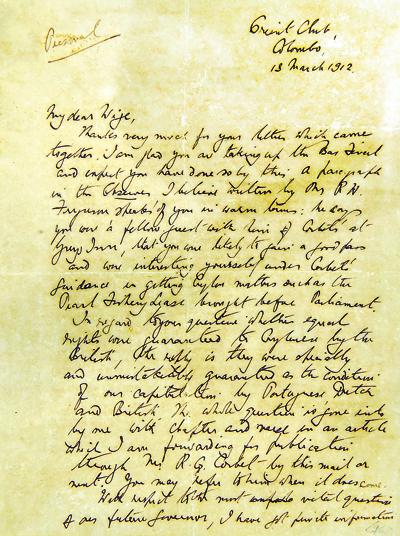 Personal
Orient Club,
Colombo,
13 March 1912.
My dear Wije,
Thanks very much for your letters which came
together. I am glad you are taking up the Bar Final
and expect you have done so by this. A paragraph
in the Observer I believe written by Mr R. H.
Ferguson speaks of you in warm terms: he says
you were a fellow guest with him of Corbet's at
Grays Inn, that you were likely to gain a good pass
and were interesting yourself under Corbet's
guidance in getting Ceylon matters such as the
Pearl Fishery Lease brought before Parliament.
In regard to your question whether equal
rights were guaranteed to Ceylonese by the
British, the reply is they were specially
and unmistakably guaranteed as the conditions
of our capitulation by Portuguese Dutch
and British. The whole question is gone into
by me with chapter and verse in an article
which I am forwarding for publication
through Mr. R. G. Corbet by this mail or
next. You may refer to him when it does come.
With respect to the most vital question
of our future Governor, I have got private information